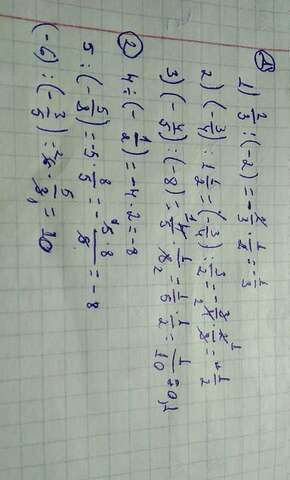 ①
1) 2/3 : (-2) = -2/3 · 1/2 = -1/3
2) (-3/4) : 1 1/2 = (-3/4) : 3/2 = -3/4 · 2/3 = -1/2
3) (-4/5) : (-8) = 4/5 · 1/8 = 1/5 · 1/2 = 1/10 = 0,1
②
4 : (-1/2) = -4 · 2 = -8
5 : (-5/8) = -5 · 8/5 = -5·8/5 = -8
(-6) : (-3/5) = 6 · 5/3 = 10